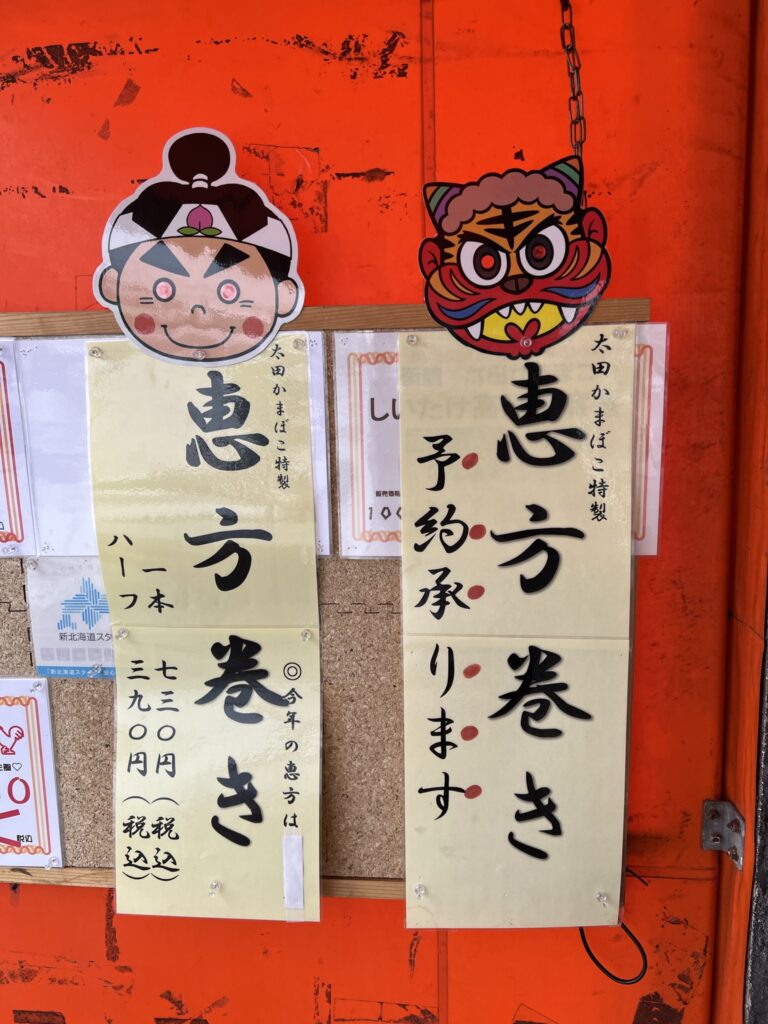 太田かまぼこ特製
恵方巻き
予約承ります
太田かまぼこ特製
恵方巻き
◎今年の恵方は
一本 七三〇円(税込)
ハーフ 三九〇円(税込)
しいたけ
100
新北海道スタ
税込